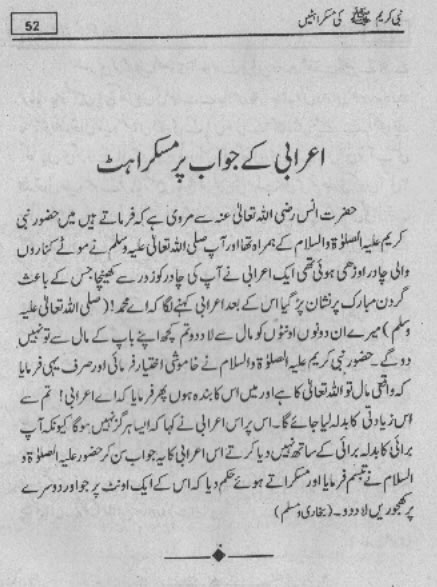 نبی کریم ﷺ کی مسکراہٹیں
52
اعرابی کے جواب پر مسکراہٹ
حضرت انس رضی اللہ تعالیٰ عنہ سے مروی ہے کہ فرماتے ہیں میں حضور نبی
کریم علیہ الصلوٰۃ والسلام کے ہمراہ تھا اور آپ صلی اللہ تعالیٰ علیہ وسلم نے موٹے کناروں
والی چادر اوڑھی ہوئی تھی ایک اعرابی نے آپ کی چادر کو زور سے کھینچا جس کے باعث
گردن مبارک پر نشان پڑ گیا اس کے بعد اعرابی کہنے لگا کہ اے محمد! (صلی اللہ تعالیٰ علیہ
وسلم) میرے ان دونوں اونٹوں کو مال سے لا دو تم کچھ اپنے باپ کے مال سے تو نہیں
دو گے۔ حضور نبی کریم علیہ الصلوٰۃ والسلام نے خاموشی اختیار فرمائی اور صرف یہی فرمایا
کہ واقعی مال تو اللہ تعالیٰ کا ہے اور میں اس کا بندہ ہوں پھر فرمایا کہ اے اعرابی! تم سے
اس زیادتی کا بدلہ لیا جائے گا۔ اس پر اس اعرابی نے کہا کہ ایسا ہرگز نہیں ہوگا کیونکہ آپ
برائی کا بدلہ برائی کے ساتھ نہیں دیا کرتے اس اعرابی کا یہ جواب سن کر حضور علیہ الصلوٰۃ و
السلام نے تبسم فرمایا اور مسکراتے ہوئے حکم دیا کہ اس کے ایک اونٹ پر جو اور دوسرے
پر کھجوریں لا دو۔ (بخاری و مسلم)